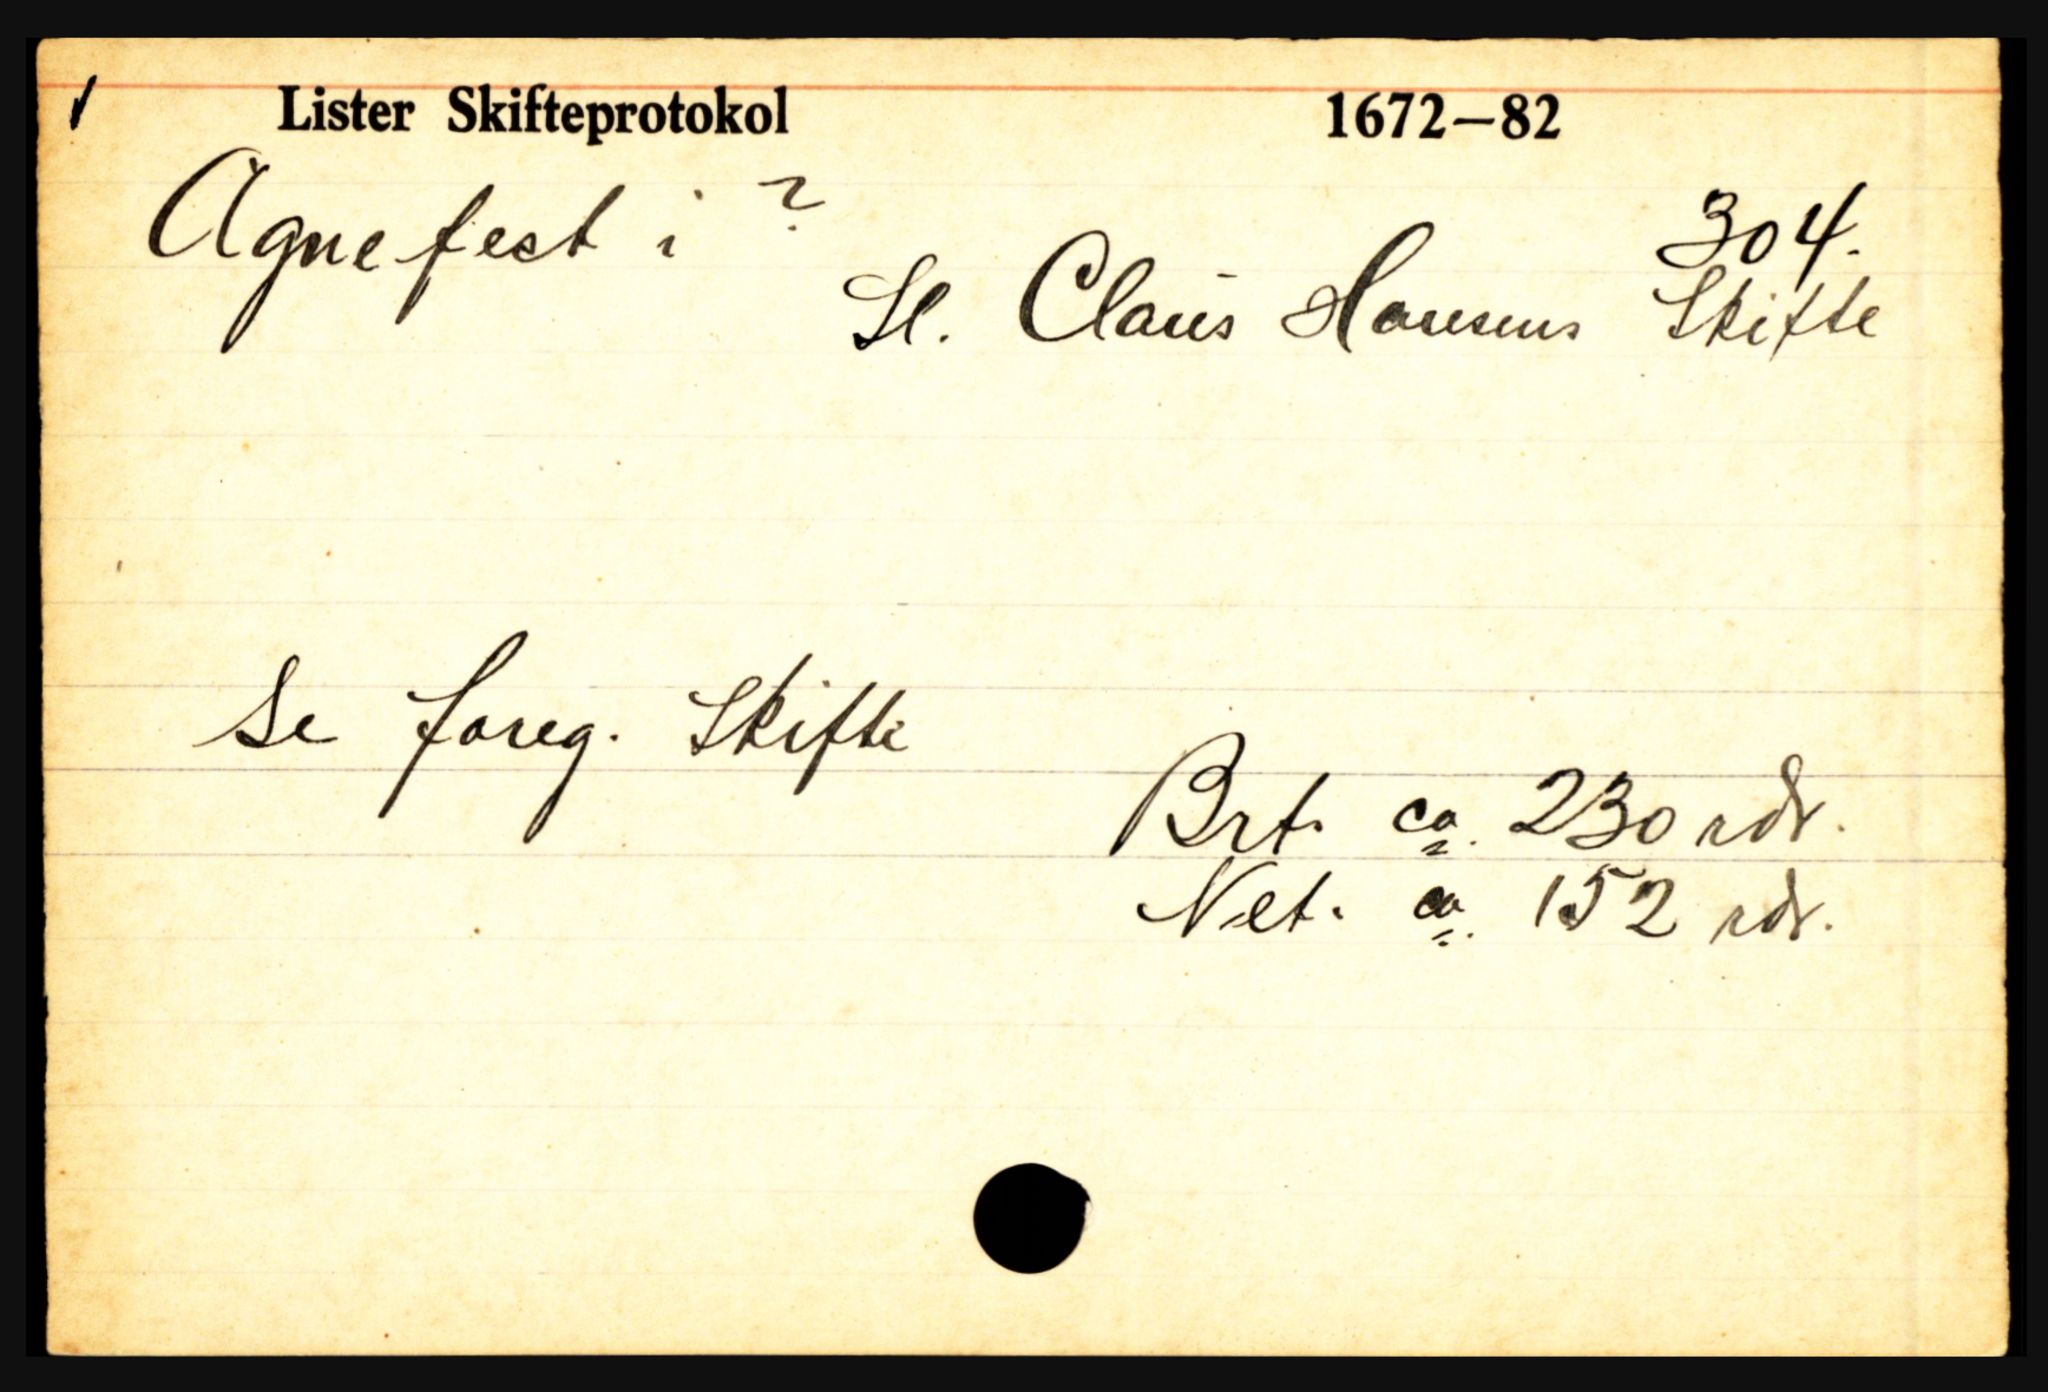 Lister Skifteprotokol 1672–82
Agnefest i ? 304.
Sl. Claus Hansens Skifte
Se foreg. Skifte
Brt. ca. 230 rdr.
Net. ca. 152 rdr.